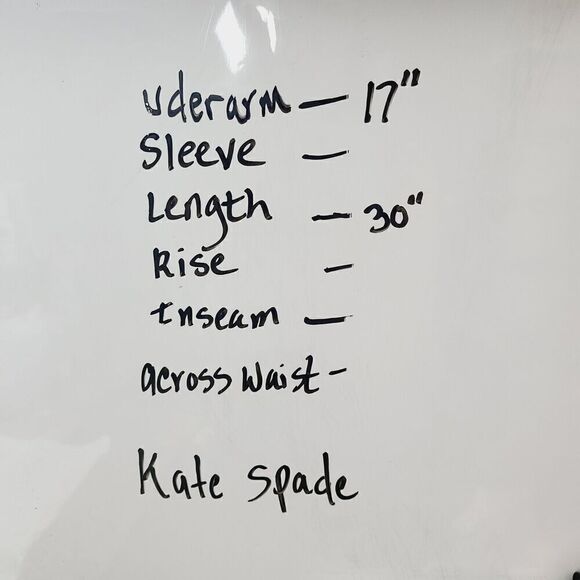 Uderarm — 17"
Sleeve —
Length — 30"
Rise —
Inseam —
across Waist -
Kate Spade